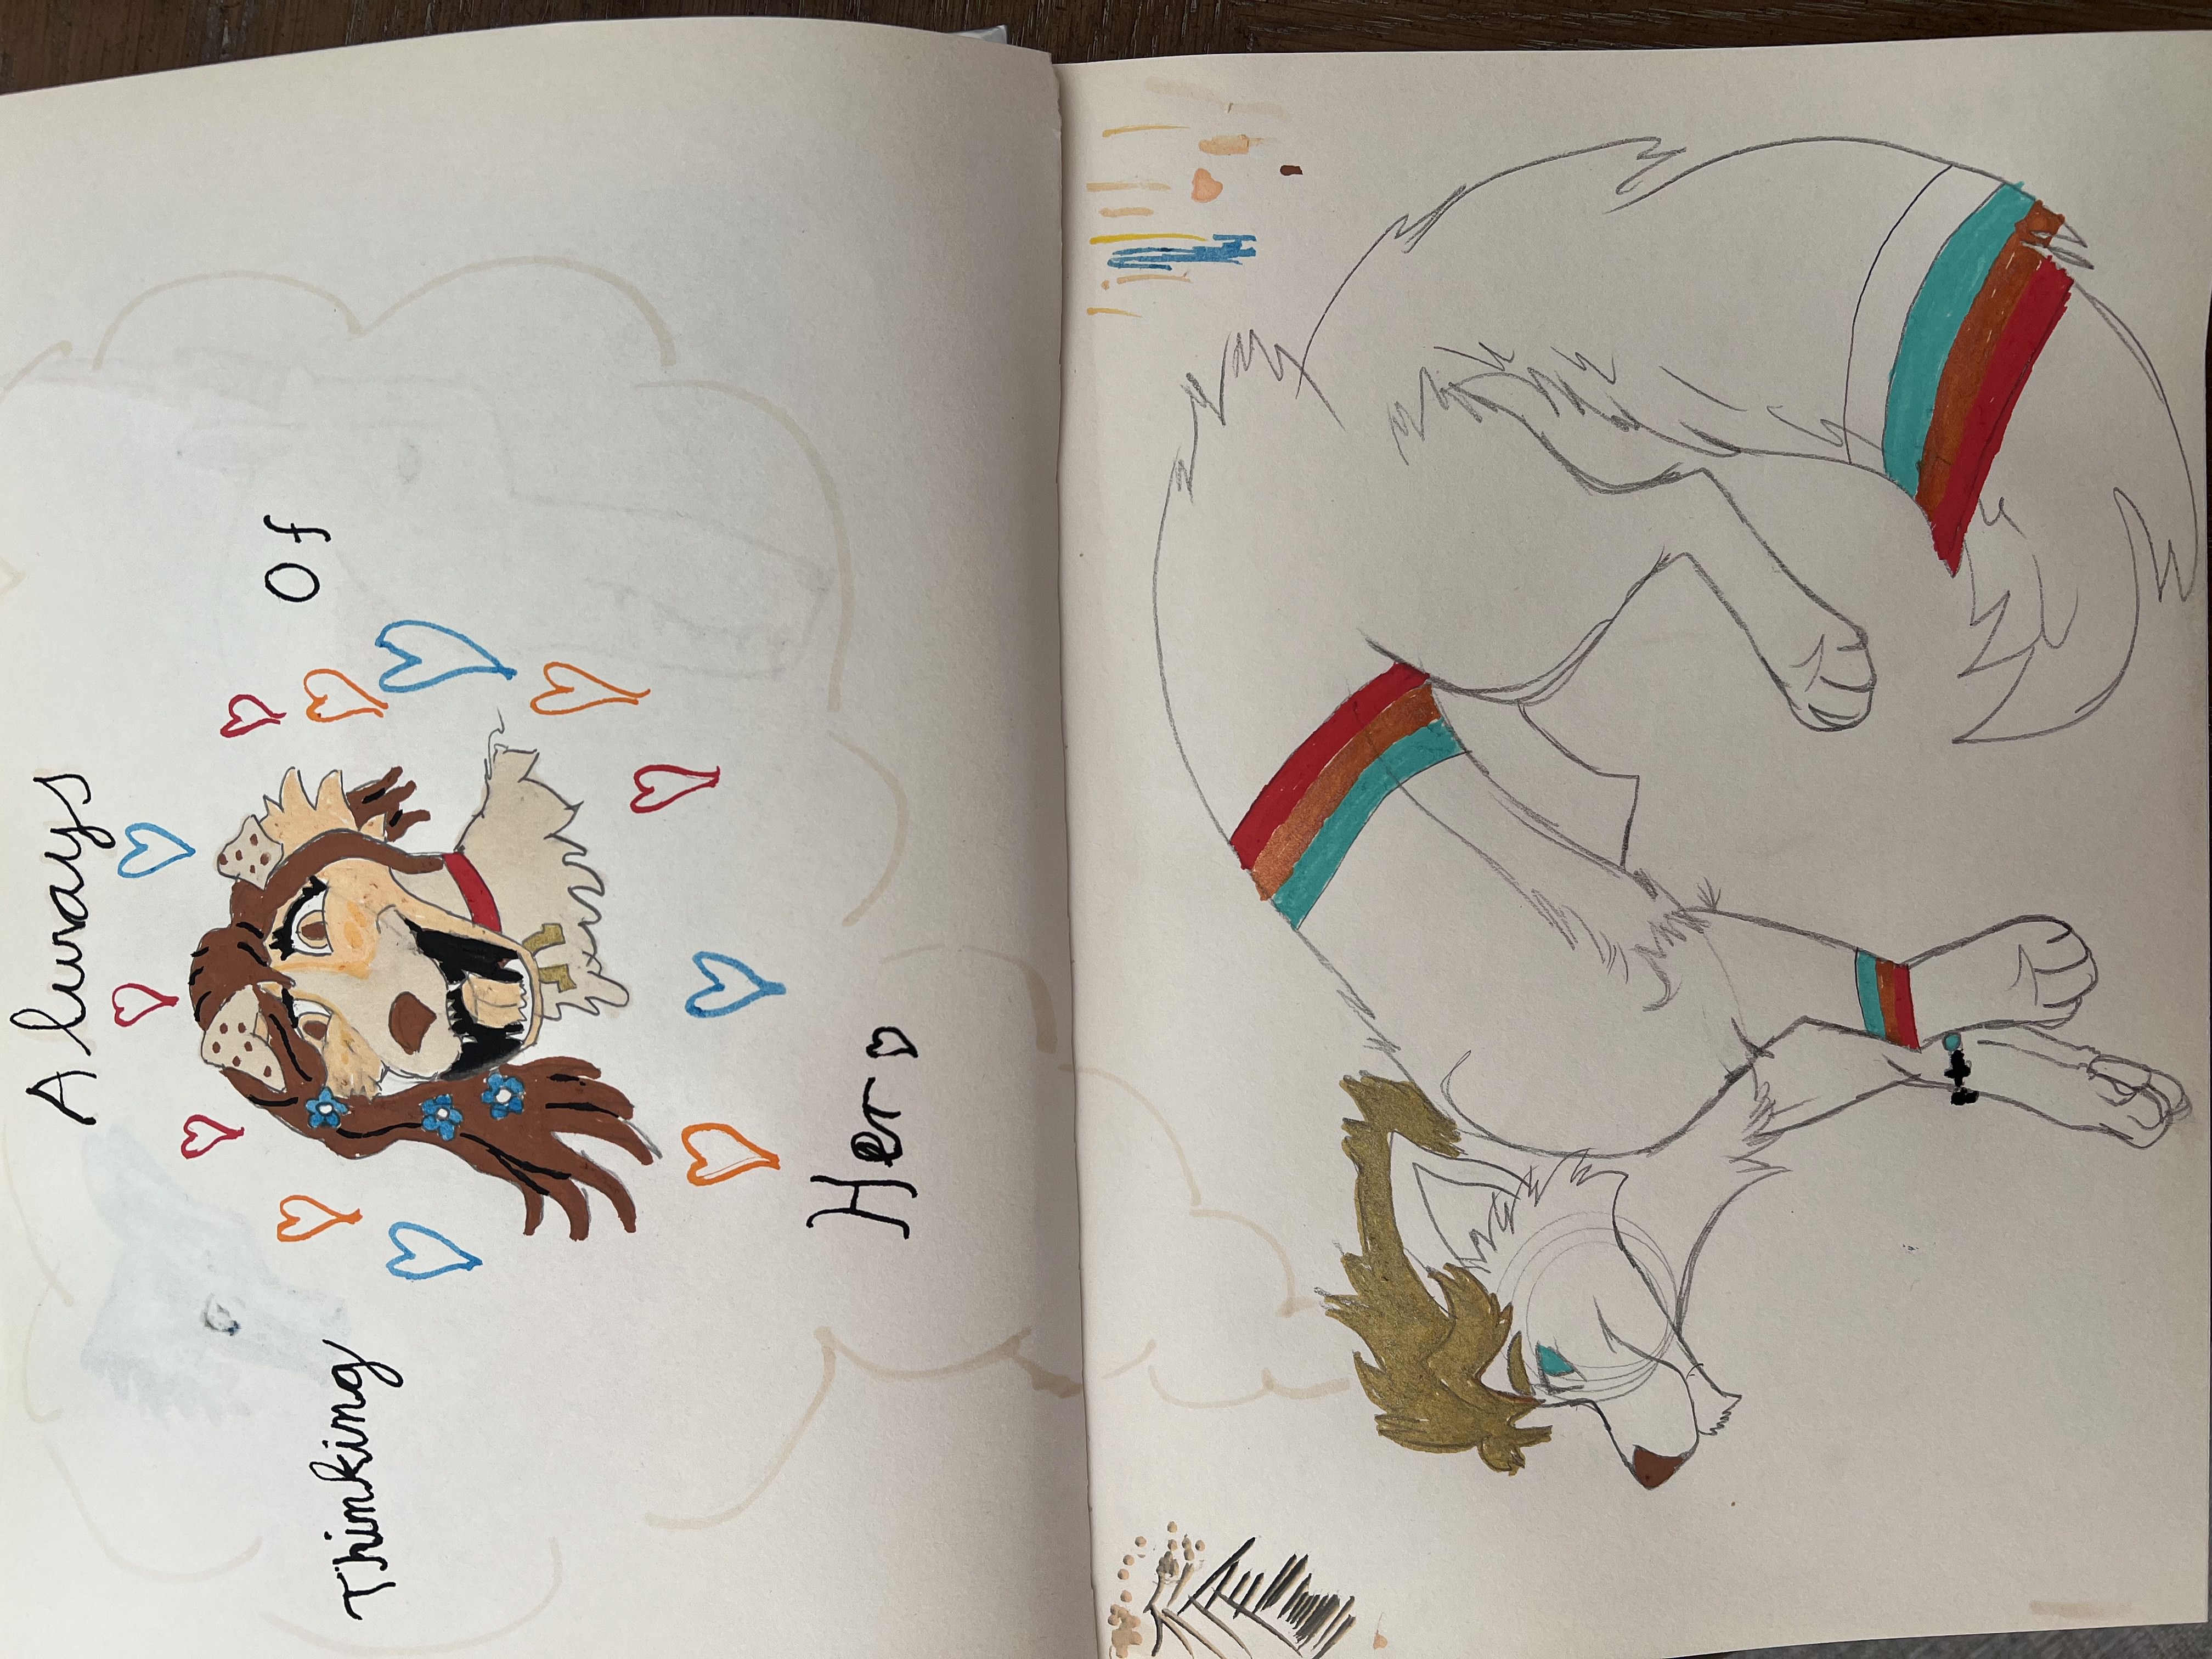 Always
Thinking
Of
Her